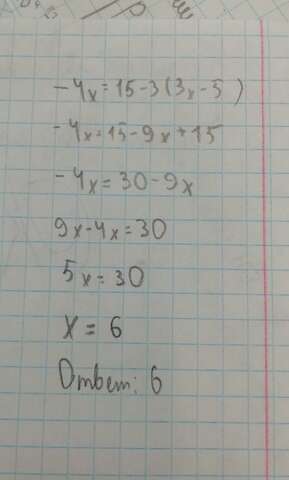 -4x=15-3(3x-5)
-4x=15-9x+15
-4x=30-9x
9x-4x=30
5x=30
x=6
Ответ: 6